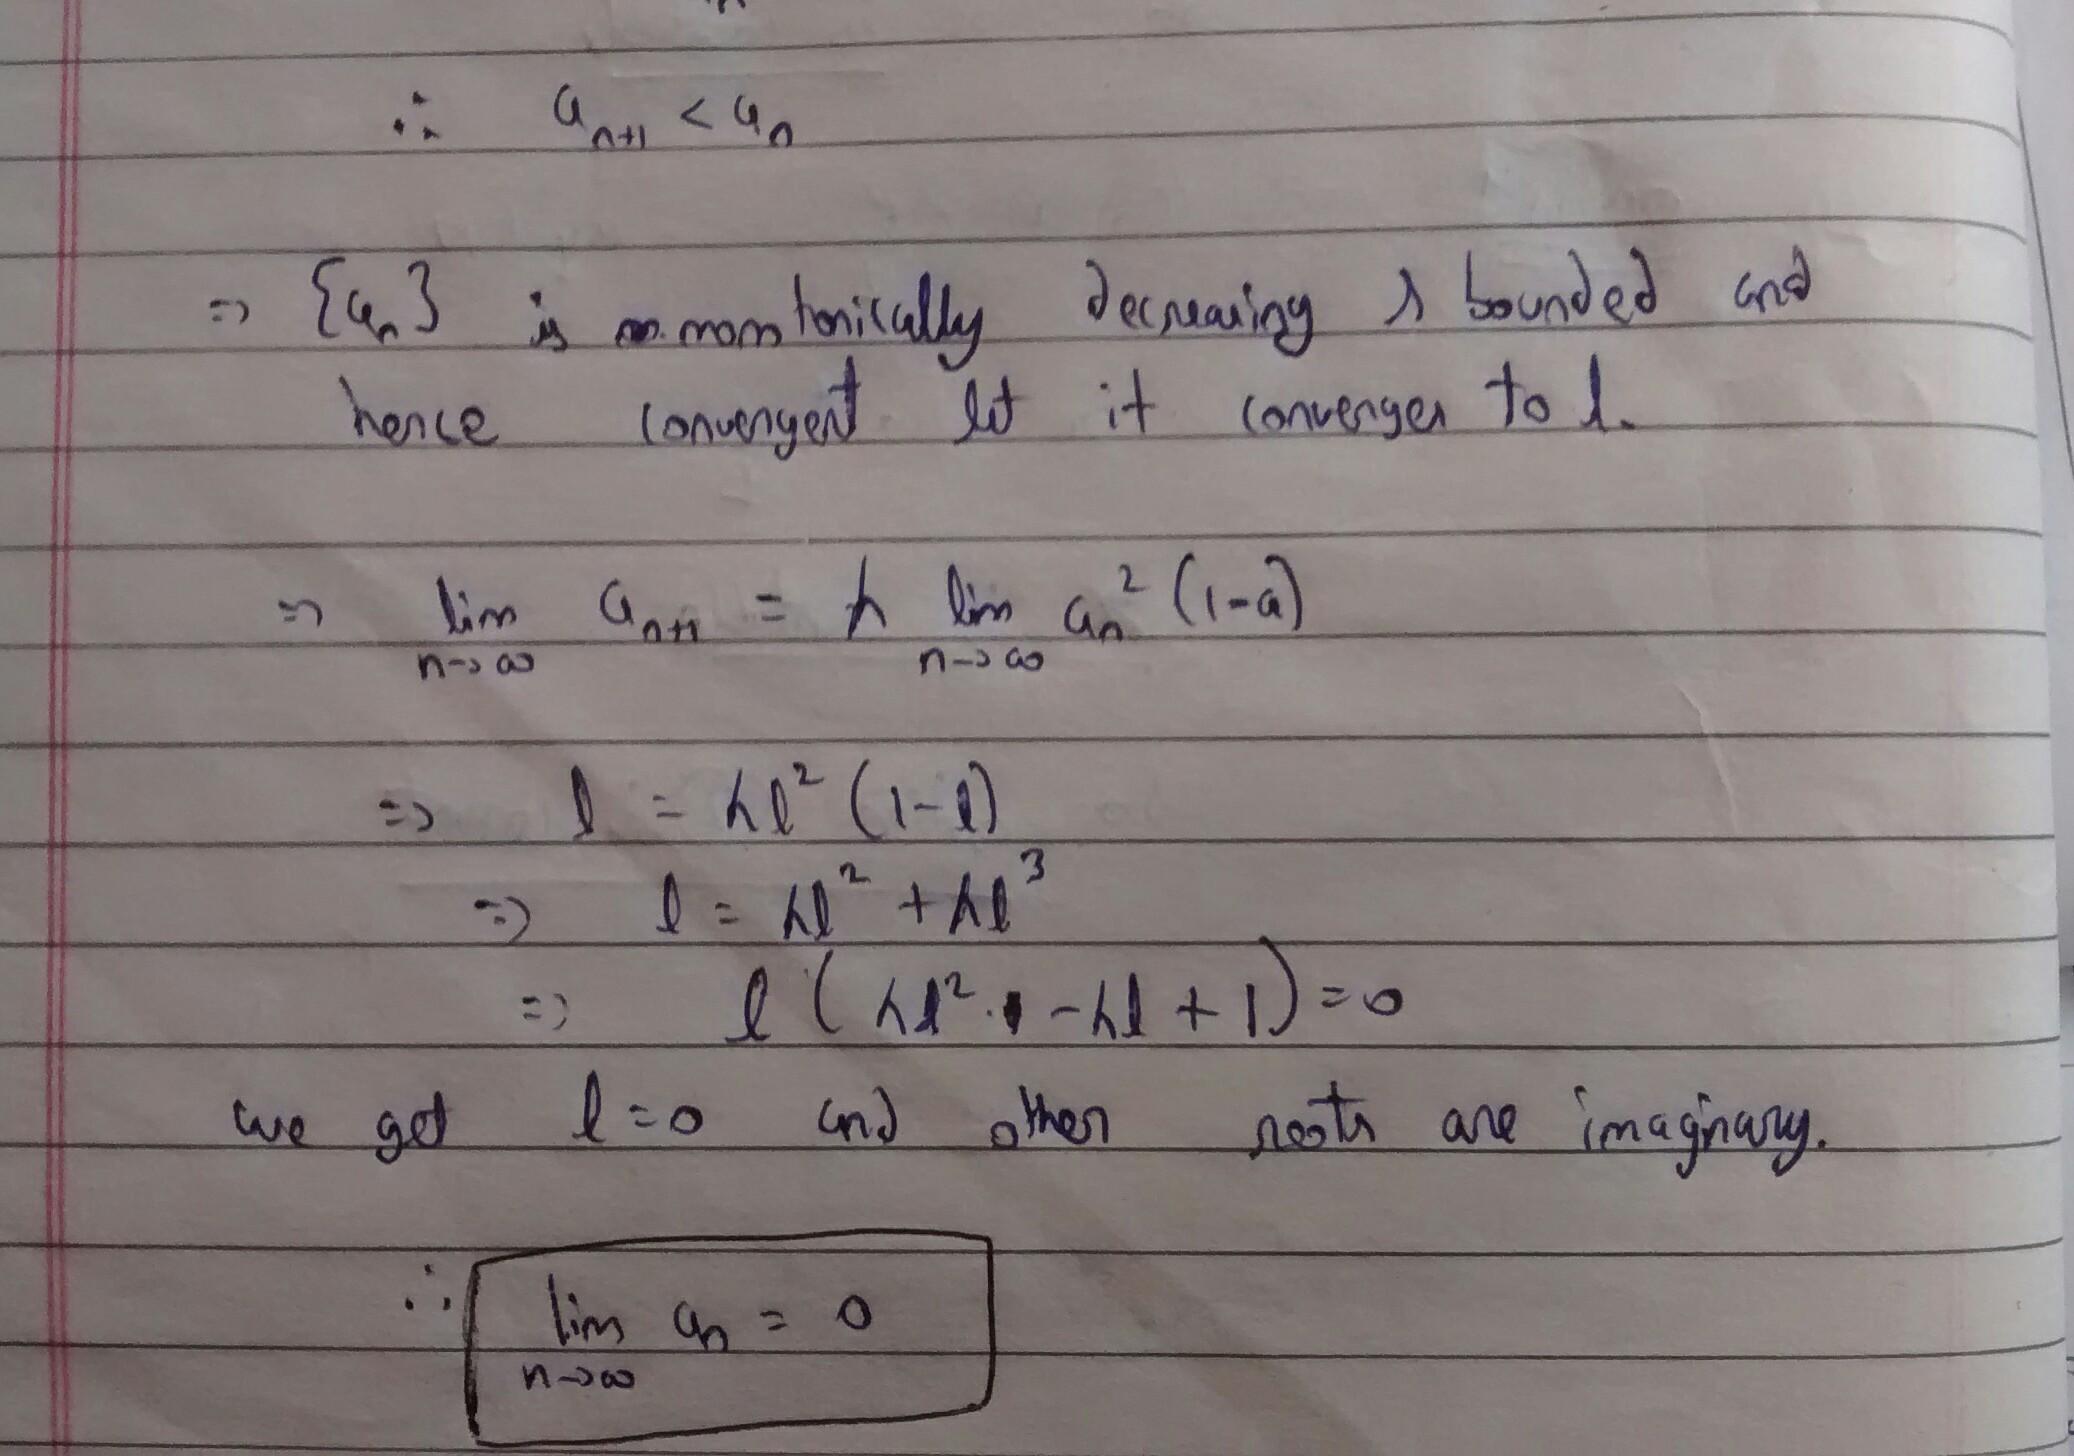 ∴ a_{n+1} < a_n
=> {a_n} is monotonically decreasing & bounded and
hence convergent let it converges to l.
=> lim_{n→∞} a_{n+1} = λ lim_{n→∞} a_n² (1-a)
=> l = λl² (1-l)
=> l = λl² + λl³
=> l (λl² - λl + 1) = 0
we get l=0 and other roots are imaginary.
∴ lim_{n→∞} a_n = 0